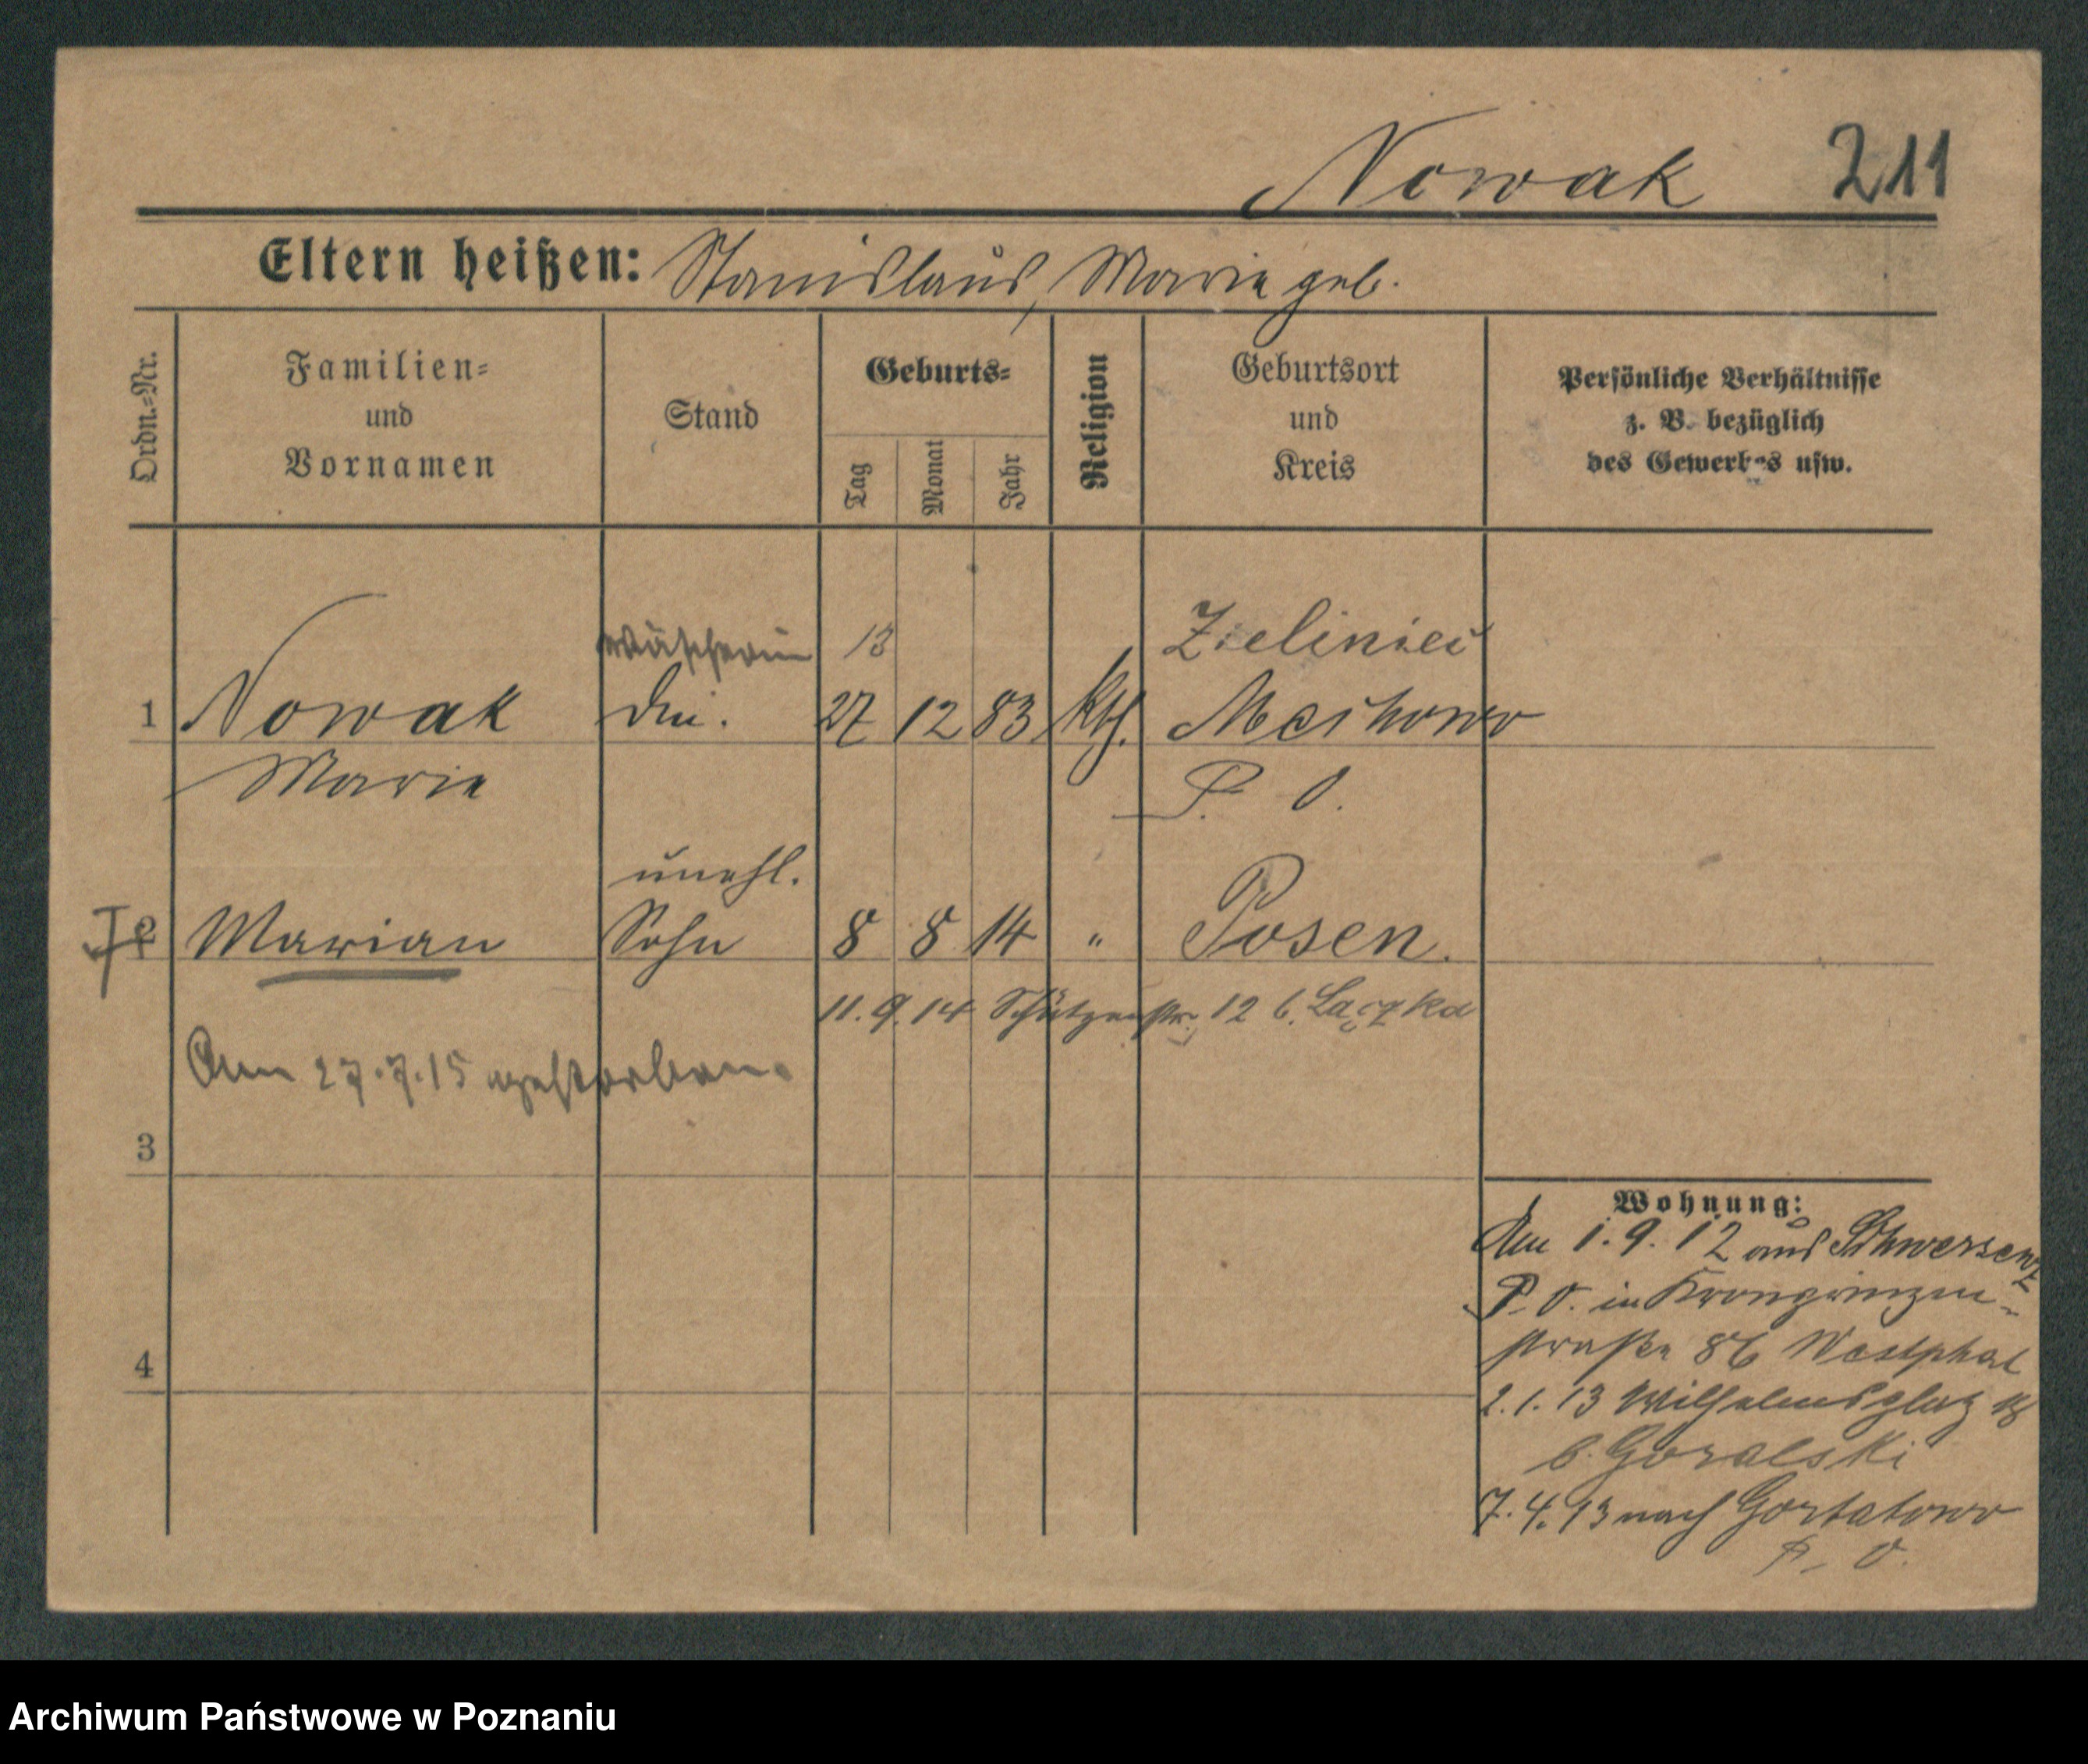 Nowak 211
Eltern heißen: Stanislaus, Marie geb.
Ordn.=Nr.
Familien=
und
Vornamen
Stand
Geburts=
Tag
Monat
Jahr
Religion
Geburtsort
und
Kreis
Persönliche Verhältnisse
z. B. bezüglich
des Gewerbes usw.
Wäscherin 13 Zieliniec
1 Nowak 27 12 83 kth.
Marie P. O.
unehl.
2 Marian Sohn 8 8 14 " Posen.
11.9.14 Schützenstr. 12 b. Lączka
Am 27.7.15 gestorben.
3
Wohnung:
Am 1.9.12 aus Schwersenz
P. O. in Kronprinzen-
straße 86 Westphal
2.1.13 Wilhelmsplatz 18
b. Goralski
7.4.13 nach Gortatowo
P. O.
4
Archiwum Państwowe w Poznaniu